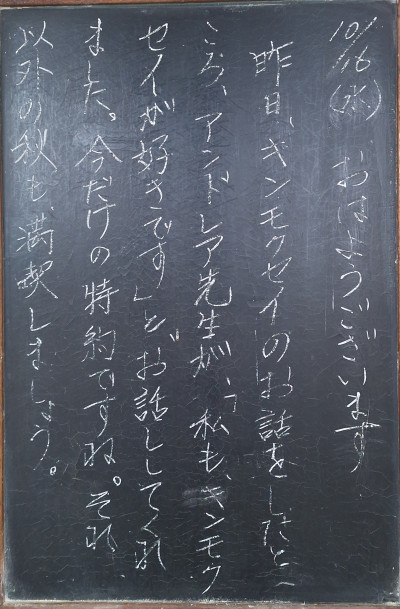 10/16(水) おはようございます
昨日、キンモクセイのお話をしたと
ころ、アンドレア先生が、「私も、キンモク
セイが好きです」と、お話ししてくれ
ました。今だけの特約ですね。それ
以外の秋も、満喫しましょう。